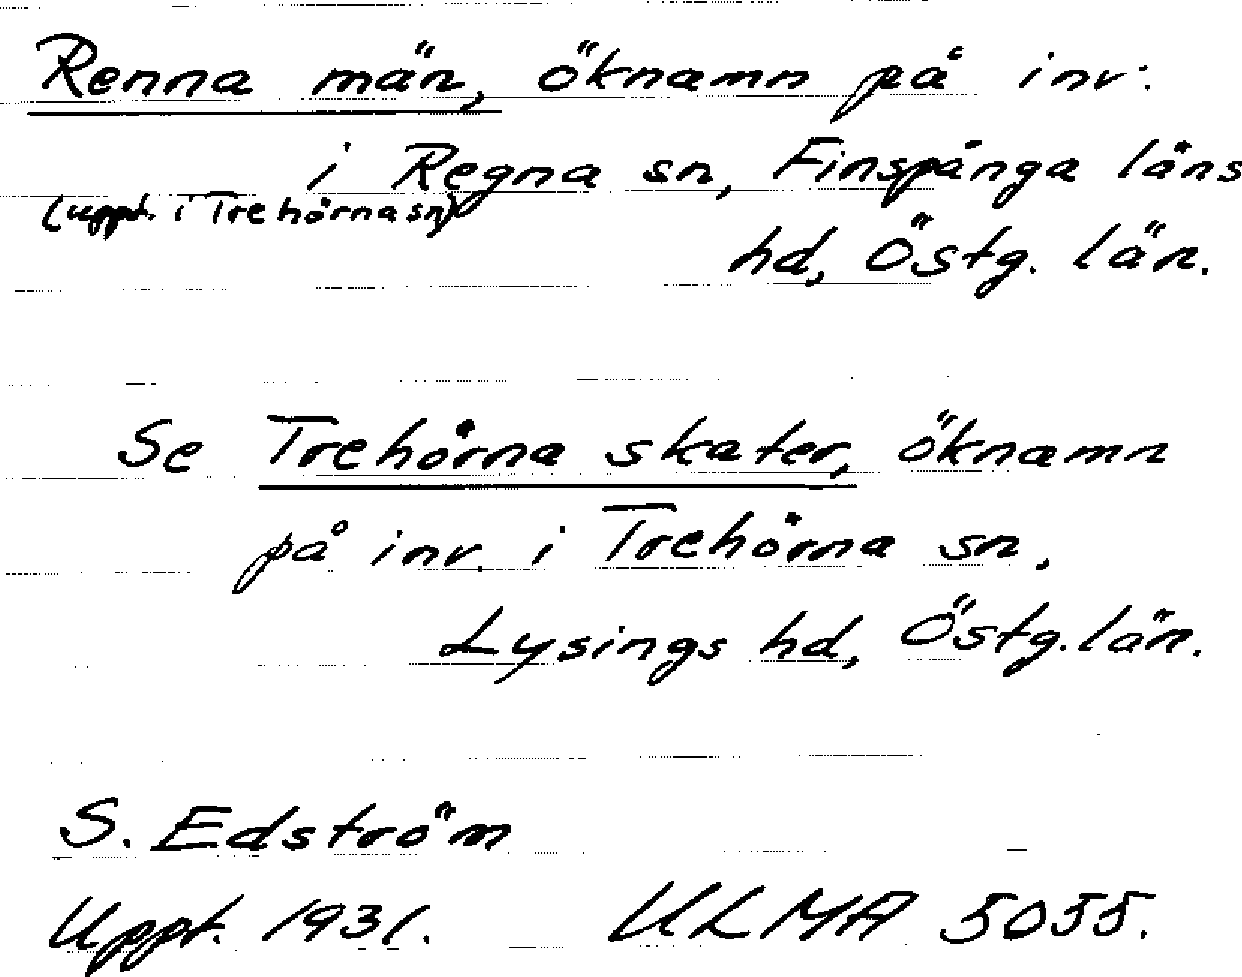 Renna män, öknamn på inv.
i Regna sn, Finspånga läns
(uppt. i Trehörna sn)
hd, Östg. län.
Se Trehörna skater, öknamn
på inv. i Trehörna sn,
Lysings hd, Östg. län.
S. Edström
Uppt. 1931. ULMA 5055.